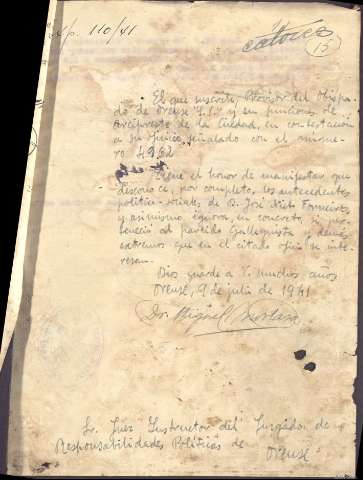 Ap. 110/41
catorce
15
El que suscribe, Provisor del Obispa-
do de Orense S.P. y en funciones de
Arcipreste de la Ciudad, en contestación
a su oficio señalado con el núme-
ro 4962
Tiene el honor de manifestar que
desconoce, por completo, los antecedentes
político-sociales de D. José Nieto
y asimismo, ignora, en concreto, si per-
teneció al partido Galleguista y demás
extremos que en el citado oficio se inte-
resan.
Dios guarde a V. muchos años
Orense, 9 de julio de 1941
Dr. Miguel
Sr. Juez Instructor del Juzgado de
Responsabilidades Políticas de
Orense